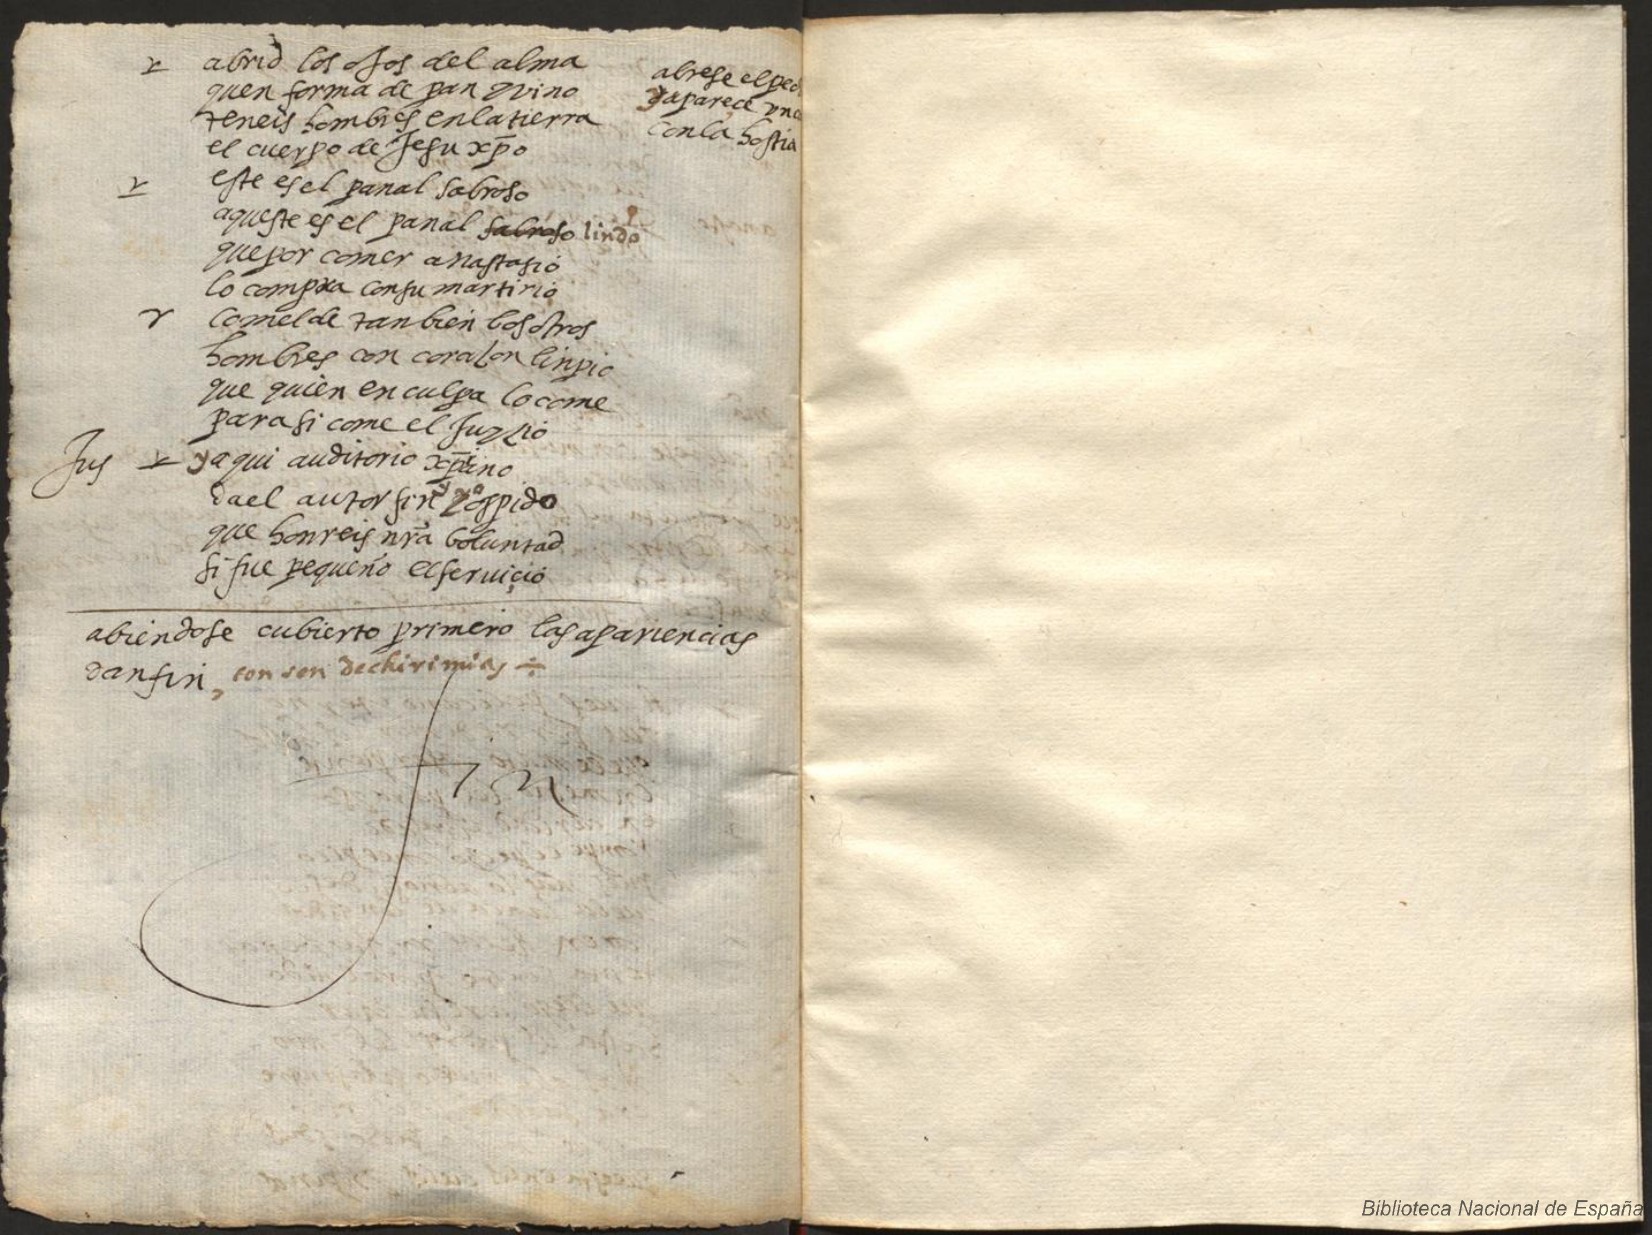 abrid los ojos del alma
quen forma de pan y vino
teneis hombres en la tierra
el cuerpo de Jesu xpo
abrese el
y aparece
con la hostia
este es el panal sabroso
aqueste es el panal sabroso lindo
que por comer anastasio
lo compra con su martirio
comelde tanbien bosotros
hombres con coraçon linpio
que quien en culpa lo come
para si come el Juyzio
Jus y aqui auditorio xpino
da el autor fin y yo os pido
que honreis nra boluntad
si fue pequeño el seruiçio
abiendose cubierto primero las apariencias
dan fin, con son de chirimias
fin
Biblioteca Nacional de España